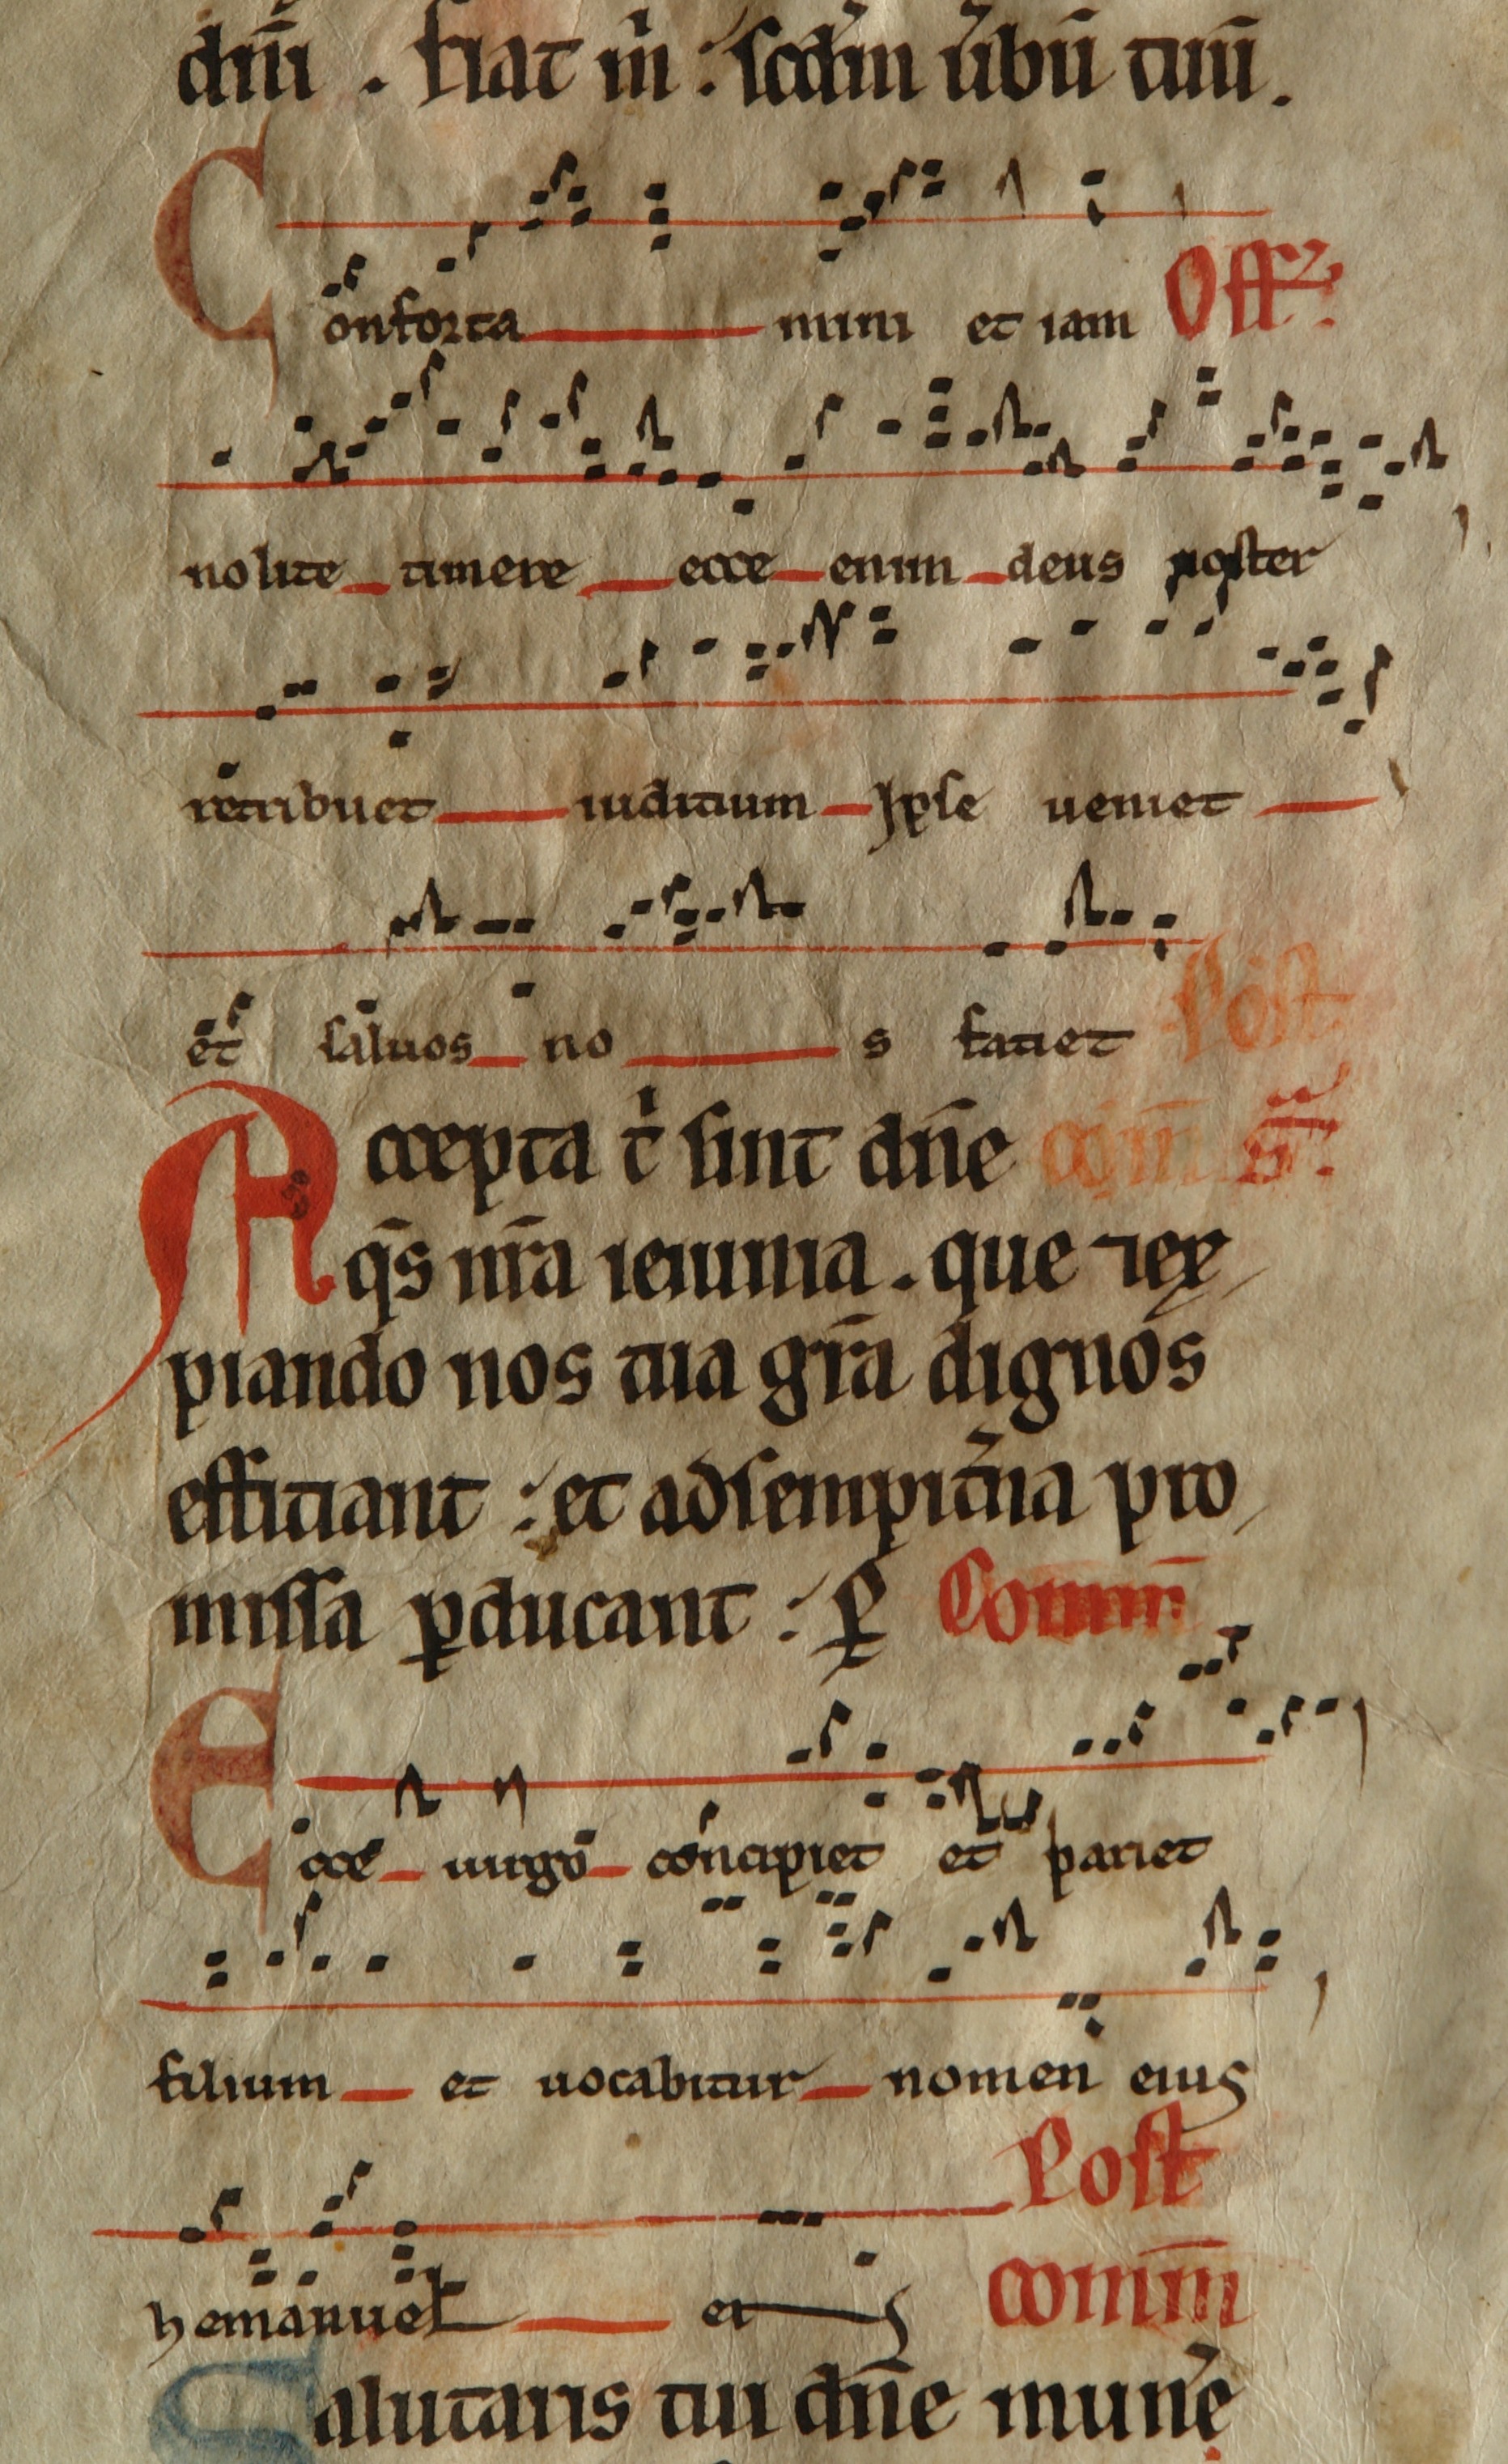 dñi . fiat m̓ : scd̓m u̓bū tuū .
Conforta mini et iam Off̓
nolite timere ecce enim deus noster
retribuet iuditium Ipse ueniet
et saluos no s fatiet Post
Accepta t̓ sint dñe com̄ s̄ .
q̄s nr̄a ieiunia . que ⁊ ex
piando nos tua gr̄a dignos
effitiant : et ad sempit̓na pro
missa ꝑducant : ꝑ Com̄
Ecce uirgo concipiet et pariet
filium et uocabitur nomen eius
Post
hemanuel ei s com̄m
Salutaris tui dñe mun̓e